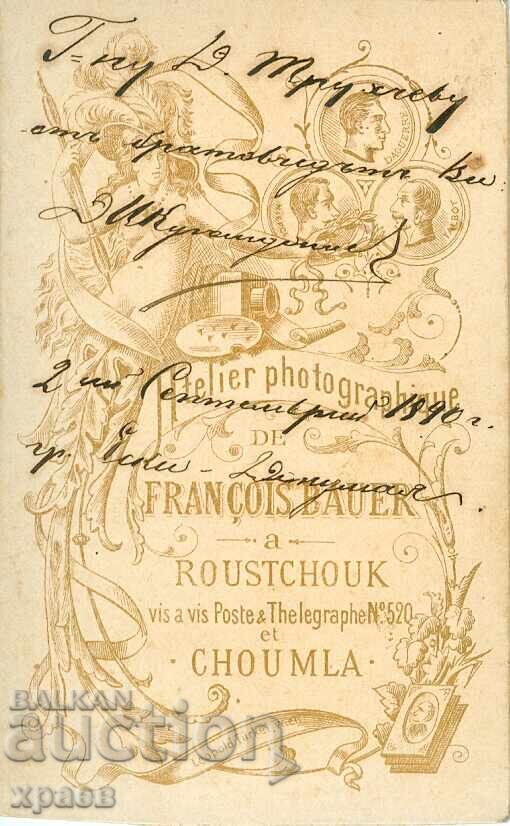 Г-ну Д. Трухчеву
отъ братовчедътъ Ви:
DAGUERRE
NIEPCE
TALBOT
2 ий Септемврий 1890 г.
гр. Ески-Джумая
Atelier photographique
DE
FRANÇOIS BAUER
a
ROUSTCHOUK
vis a vis Poste & Thelegraphe No. 520
et
CHOUMLA
BALKAN
auction
храев